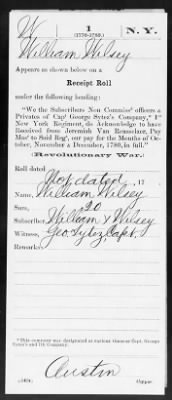 W | 1 | N.Y.
(1776-1783.)
William Wilsey
Appears as shown below on a
Receipt Roll
under the following heading:
"We the Subscribers Non Commiss' officers &
Privates of Cap' George Sytez's Company,* 1st
New York Regiment, do Acknowledge to have
Received from Jeremiah Van Rensselaer, Pay
Mas' to Said Reg', our pay for the Months of Oc-
tober, November & December, 1780, in full."
(Revolutionary War.)
Roll dated
Not dated, 17 .
Name, William Wilsey
Sum, 20
Subscriber, William x Wilsey
Witness, Geo. Sytez, Capt.
Remarks:
*This company was designated at various times as Capt. George
Sytez's and 7th Company.
Austin
Copyist.